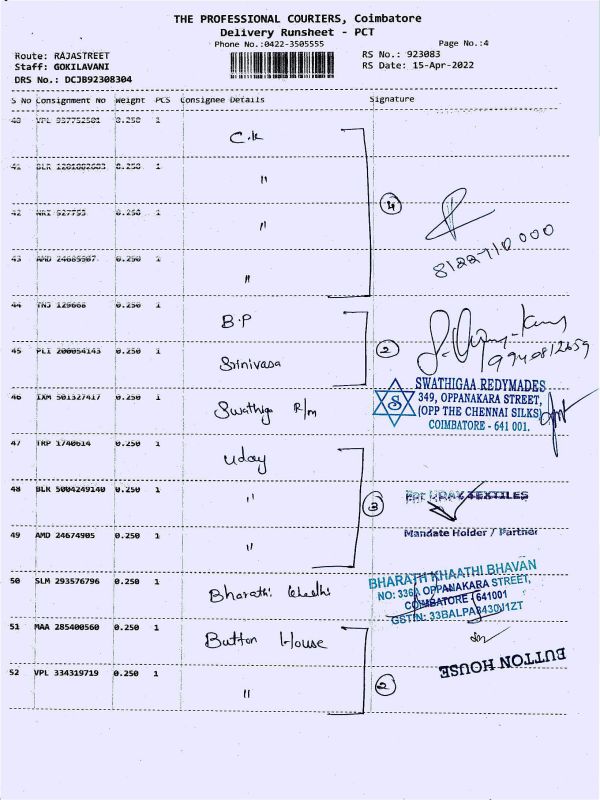 THE PROFESSIONAL COURIERS, Coimbatore
Delivery Runsheet - PCT
Phone No.:0422-3505555
Page No.:4
Route: RAJASTREET
RS No.: 923083
Staff: GOKILAVANI
RS Date: 15-Apr-2022
DRS No.: DCJB92308304
S No Consignment No Weight PCS Consignee Details Signature
40 VPL 937752501 0.250 1 C.K
41 BLR 0.250 1 "
42 927753 0.250 1 "
43 AMD 24685987 0.250 1 "
4
8122710000
44 TNJ 129668 0.250 1 B.P
45 PLI 200054143 0.250 1 Srinivasa
2
9940812659
46 IXM 501327417 0.250 1 Swathiga R/m
SWATHIGAA REDYMADES
349, OPPANAKARA STREET,
(OPP THE CHENNAI SILKS)
COIMBATORE - 641 001.
47 TRP 1740614 0.250 1 Uday
48 BLR 5004249140 0.250 1 "
3
For UDAY TEXTILES
49 AMD 24674905 0.250 1 "
Mandate Holder / Partner
50 SLM 293576796 0.250 1 Bharathi Khadhi
BHARATH KHAATHI BHAVAN
NO: 336A OPPANAKARA STREET,
COIMBATORE - 641001
GSTIN: 33BALPA3430J1ZT
51 MAA 285400560 0.250 1 Button House
BUTTON HOUSE
52 VPL 334319719 0.250 1 "
2